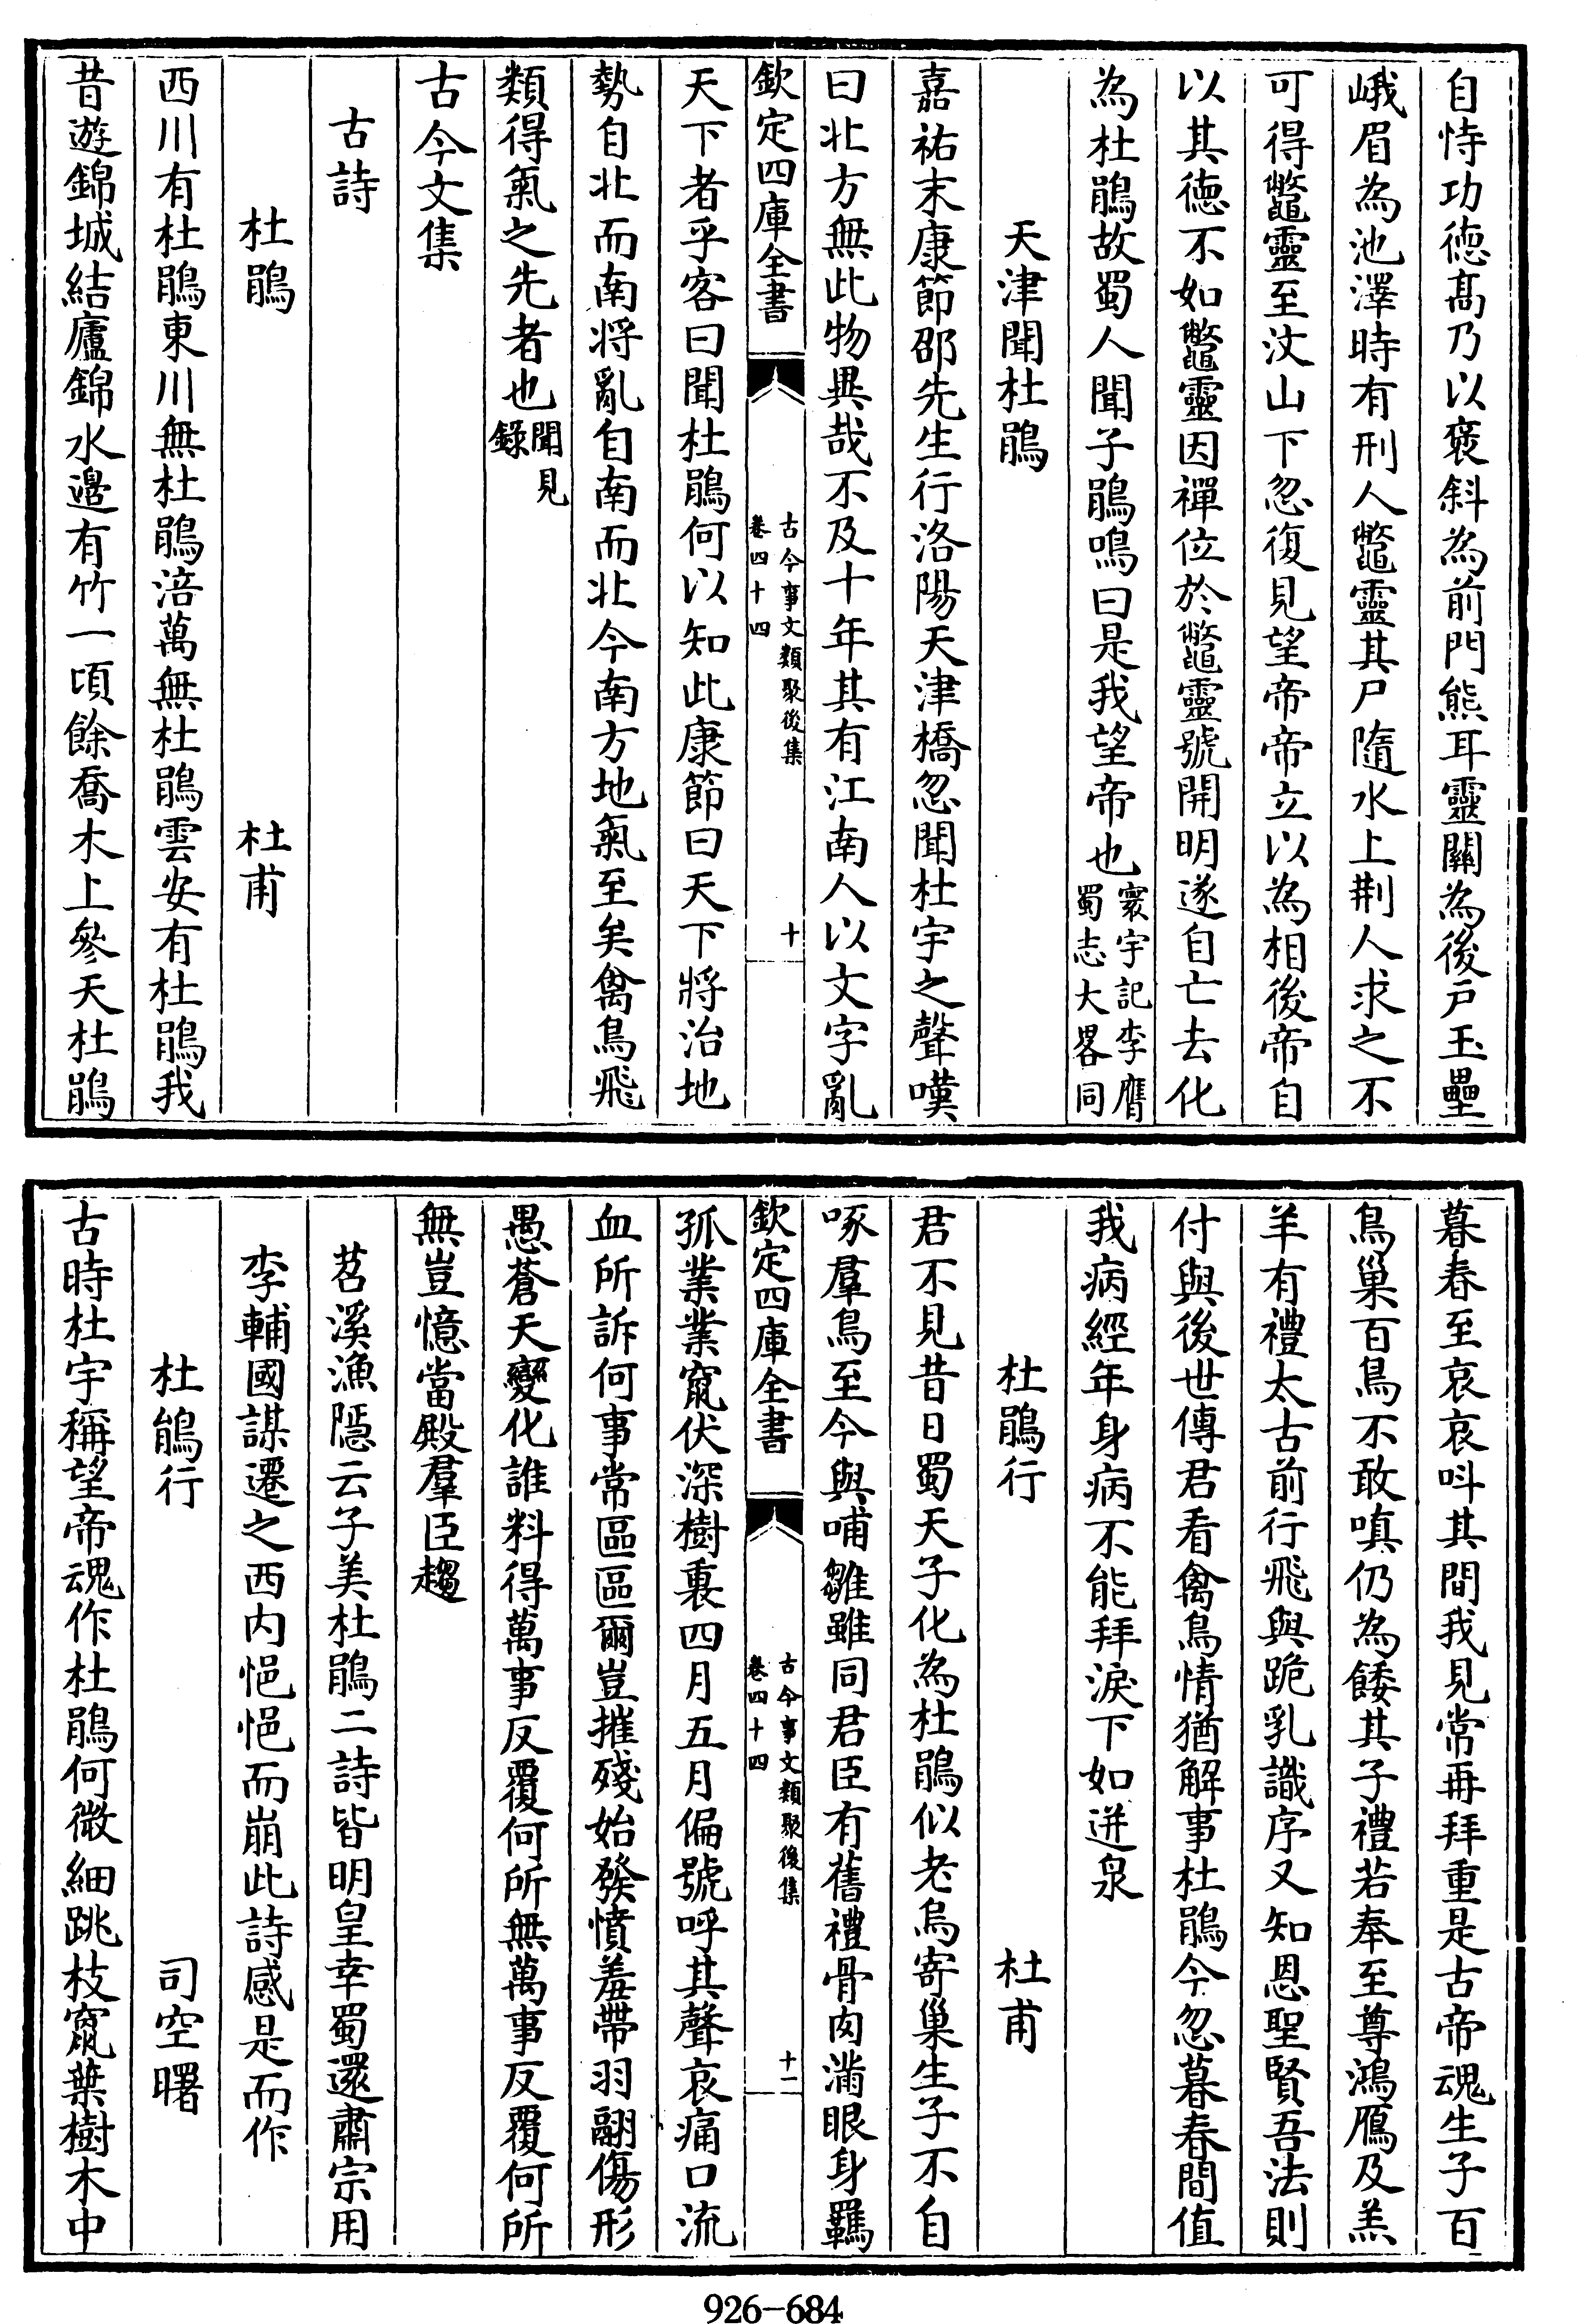 自恃功徳髙乃以褒斜為前門熊耳靈關為後戸玉壘
峨眉為池澤時有刑人鼈靈其尸隨水上荆人求之不
可得鼈靈至汶山下忽復見望帝帝立以為相後帝自
以其徳不如鼈靈因禪位於鼈靈號開明遂自亡去化
為杜鵑故蜀人聞子鵑鳴曰是我望帝也寰宇記李膺
蜀志大畧同
天津聞杜鵑
嘉祐末康節邵先生行洛陽天津橋忽聞杜宇之聲嘆
曰北方無此物異哉不及十年其有江南人以文字亂
欽定四庫全書
古今事文類聚後集
卷四十四
十
天下者乎客曰聞杜鵑何以知此康節曰天下將治地
勢自北而南将亂自南而北今南方地氣至矣禽鳥飛
類得氣之先者也聞見
錄
古今文集
古詩
杜鵑 杜甫
西川有杜鵑東川無杜鵑涪萬無杜鵑雲安有杜鵑我
昔遊錦城結廬錦水邉有竹一頃餘喬木上參天杜鵑
暮春至哀哀呌其間我見常再拜重是古帝魂生子百
鳥巢百鳥不敢嗔仍為餧其子禮若奉至尊鴻鴈及羔
羊有禮太古前行飛與跪乳識序又知恩聖賢吾法則
付與後世傳君看禽鳥情猶解事杜鵑今忽暮春間值
我病經年身病不能拜淚下如迸泉
杜鵑行 杜甫
君不見昔日蜀天子化為杜鵑似老烏寄巢生子不自
啄羣鳥至今與哺雛雖同君臣有舊禮骨肉滿眼身羈
欽定四庫全書
古今事文類聚後集
卷四十四
十一
孤業業竄伏深樹裏四月五月偏號呼其聲哀痛口流
血所訴何事常區區爾豈摧殘始發憤羞帶羽翮傷形
愚蒼天變化誰料得萬事反覆何所無萬事反覆何所
無豈憶當殿羣臣趨
苕溪漁隠云子美杜鵑二詩皆明皇幸蜀還肅宗用
李輔國謀遷之西内悒悒而崩此詩感是而作
杜鵑行 司空曙
古時杜宇稱望帝魂作杜鵑何微細跳枝竄葉樹木中
926-684